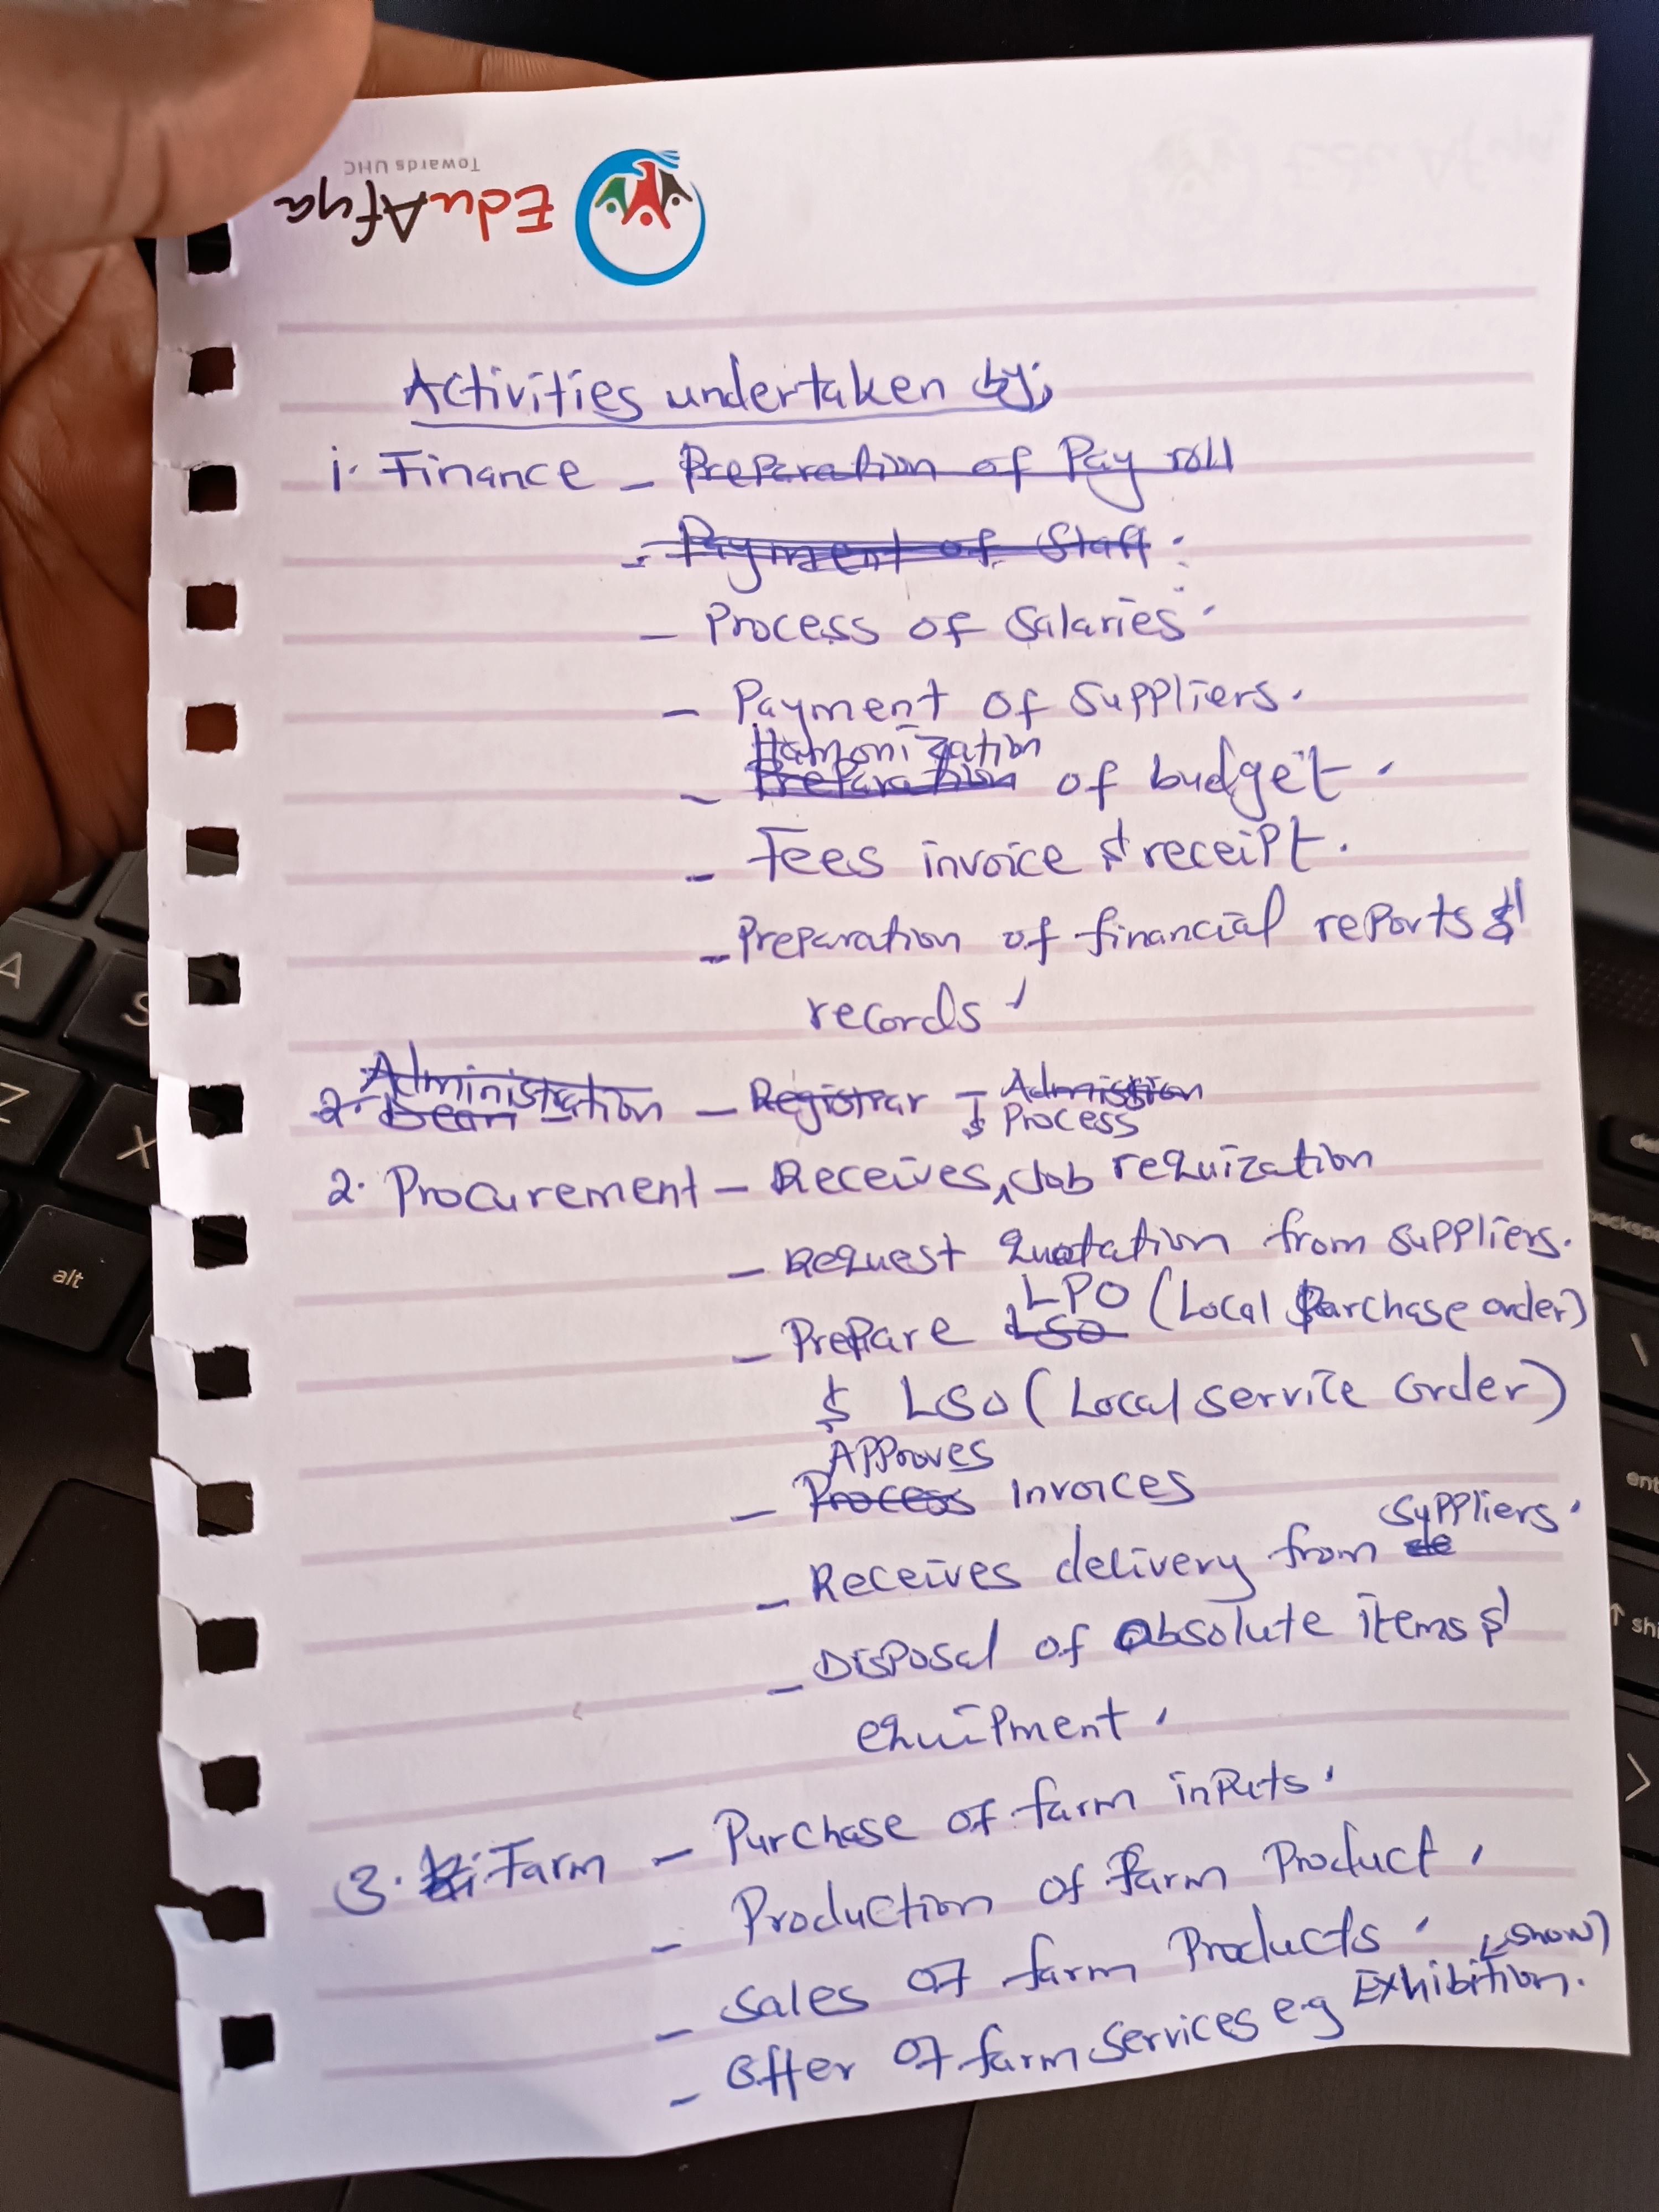 EduAfya
Towards UHC
Activities undertaken by;
i. Finance - Preparation of Pay roll
- Payment of Staff.
- Process of Salaries.
- Payment of Suppliers.
Hamonization
- Preparation of budget.
- Fees invoice & receipt.
- Preparation of financial reports &
records
Administration
2. Dean - Registrar - Admission
& Process
2. Procurement - Receives, Job requization
- Request Quotation from suppliers.
LPO (Local Purchase order)
- Prepare LSO
& LSO (Local Service order)
Approves
- Process invoices
Suppliers.
- Receives delivery from de
- Disposal of absolute items &
equipment.
3. Farm - Purchase of farm inputs.
- Production of farm Product.
- Sales of farm Products. (show)
- Offer of farm Services e.g Exhibition.
A
S
Z
X
alt
backsp
ent
shi